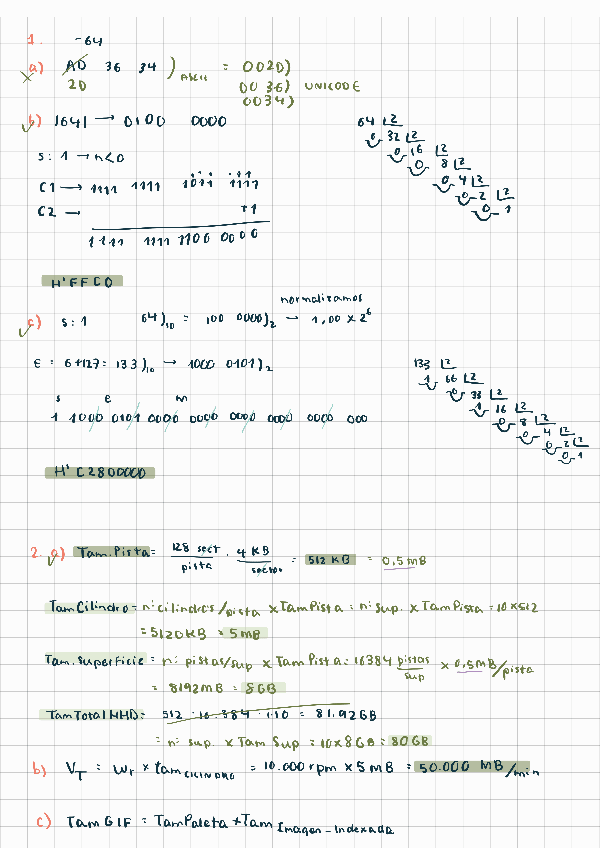 1. -64
a) AD 36 34 ) ASCII = 0020)
20 0036) UNICODE
0034)
b) |64| → 0100 0000
64 |2
0 32 |2
0 16 |2
0 8 |2
0 4 |2
0 2 |2
0 1
S: 1 → n<0
C1 → 1111 1111 1011 1111
C2 → +1
1111 1111 1100 0000
H'FFC0
normalizamos
c) S: 1 64)10 = 100 0000)2 → 1,00 x 2^6
E: 6+127 = 133)10 → 1000 0101)2
133 |2
1 66 |2
0 33 |2
1 16 |2
0 8 |2
0 4 |2
0 2 |2
0 1
s e m
1 1000 0101 0000 0000 0000 0000 0000 000
H'C2800000
2. a) Tam.Pista = 128 sect/pista · 4 KB/sector = 512 KB = 0,5 MB
Tam Cilindro = nº cilindros/pista x Tam Pista = nº sup. x Tam Pista = 10 x 512
= 5120 KB = 5 MB
Tam. Superficie = nº pistas/sup x Tam Pista = 16384 pistas/sup x 0,5 MB/pista
= 8192 MB = 8 GB
Tam Total HHD = 512 · 16.384 · 10 = 81,92 GB
= nº sup. x Tam Sup = 10 x 8 GB = 80 GB
b) VT = Wr x tam CILINDRO = 10.000 rpm x 5 MB = 50.000 MB/min
c) Tam GIF = Tam Paleta + Tam Imagen-Indexada